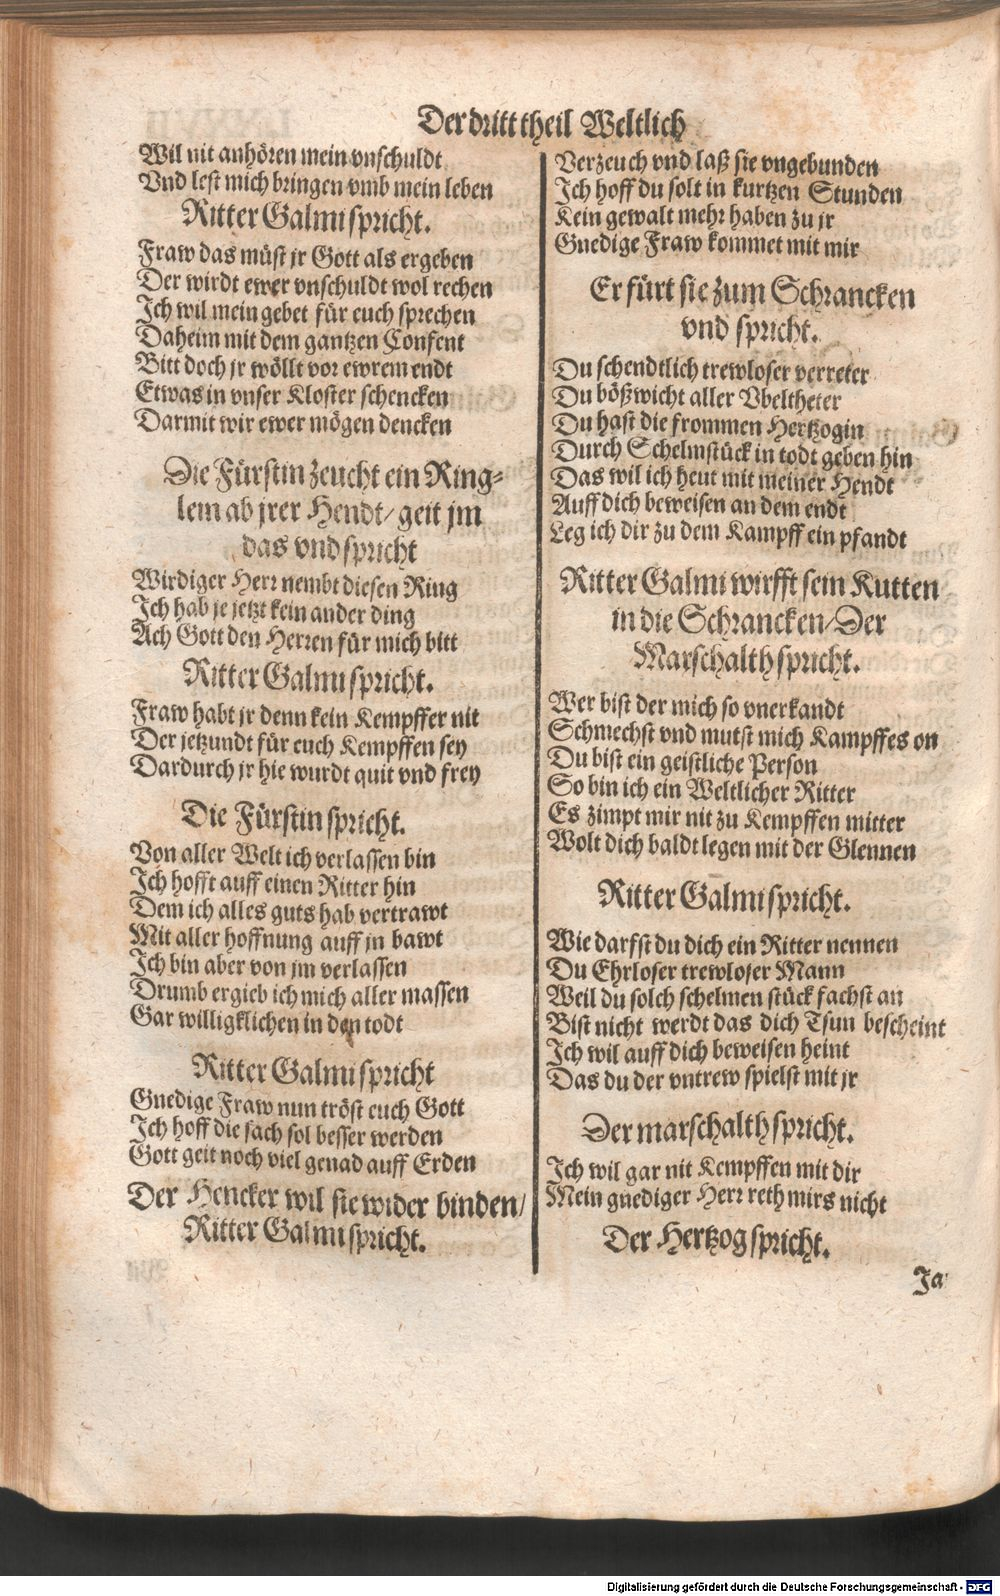 Der dritt theil Weltlich
Wil nit anhören mein vnschuldt
Vnd lest mich bringen vmb mein leben
Ritter Galmi spricht.
Fraw das müst jr Gott als ergeben
Der wirdt ewer vnschuldt wol rechen
Ich wil mein gebet für euch sprechen
Daheim mit dem gantzen Confent
Bitt doch jr wöllt vor ewrem endt
Etwas in vnser Kloster schencken
Darmit wir ewer mögen dencken
Die Fürstin zeucht ein Ring-
lein ab jrer Hendt/ geit jm
das vnd spricht
Wirdiger Herr nembt diesen Ring
Ich hab je jetzt kein ander ding
Ach Gott den Herren für mich bitt
Ritter Galmi spricht.
Fraw habt jr denn kein Kempffer nit
Der jetzundt für euch Kempffen sey
Dardurch jr hie wurdt quit vnd frey
Die Fürstin spricht.
Von aller Welt ich verlassen bin
Ich hofft auff einen Ritter hin
Dem ich alles guts hab vertrawt
Mit aller hoffnung auff jn bawt
Ich bin aber von jm verlassen
Drumb ergieb ich mich aller massen
Gar willigklichen in den todt
Ritter Galmi spricht
Gnedige Fraw nun tröst euch Gott
Ich hoff die sach sol besser werden
Gott geit noch viel genad auff Erden
Der Hencker wil sie wider binden/
Ritter Galmi spricht.
Verzeuch vnd laß sie vngebunden
Ich hoff du solt in kurtzen Stunden
Kein gewalt mehr haben zu jr
Gnedige Fraw kommet mit mir
Er fürt sie zum Schrancken
vnd spricht.
Du schendtlich trewloser verreter
Du bößwicht aller Vbeltheter
Du hast die frommen Hertzogin
Durch Schelmstück in todt geben hin
Das wil ich heut mit meiner Hendt
Auff dich beweisen an dem endt
Leg ich dir zu dem Kampff ein pfandt
Ritter Galmi wirfft sein Kutten
in die Schrancken/ Der
Marschalth spricht.
Wer bist der mich so vnerkandt
Schmechst vnd mutst mich Kampffes on
Du bist ein geistliche Person
So bin ich ein Weltlicher Ritter
Es zimpt mir nit zu Kempffen mitter
Wolt dich baldt legen mit der Glennen
Ritter Galmi spricht.
Wie darfst du dich ein Ritter nennen
Du Ehrloser trewloser Mann
Weil du solch schelmen stück fachst an
Bist nicht werdt das dich Tsun bescheint
Ich wil auff dich beweisen heint
Das du der vntrew spielst mit jr
Der marschalth spricht.
Ich wil gar nit Kempffen mit dir
Mein gnediger Herr reth mirs nicht
Der Hertzog spricht.
Ja
Digitalisierung gefördert durch die Deutsche Forschungsgemeinschaft - DFG